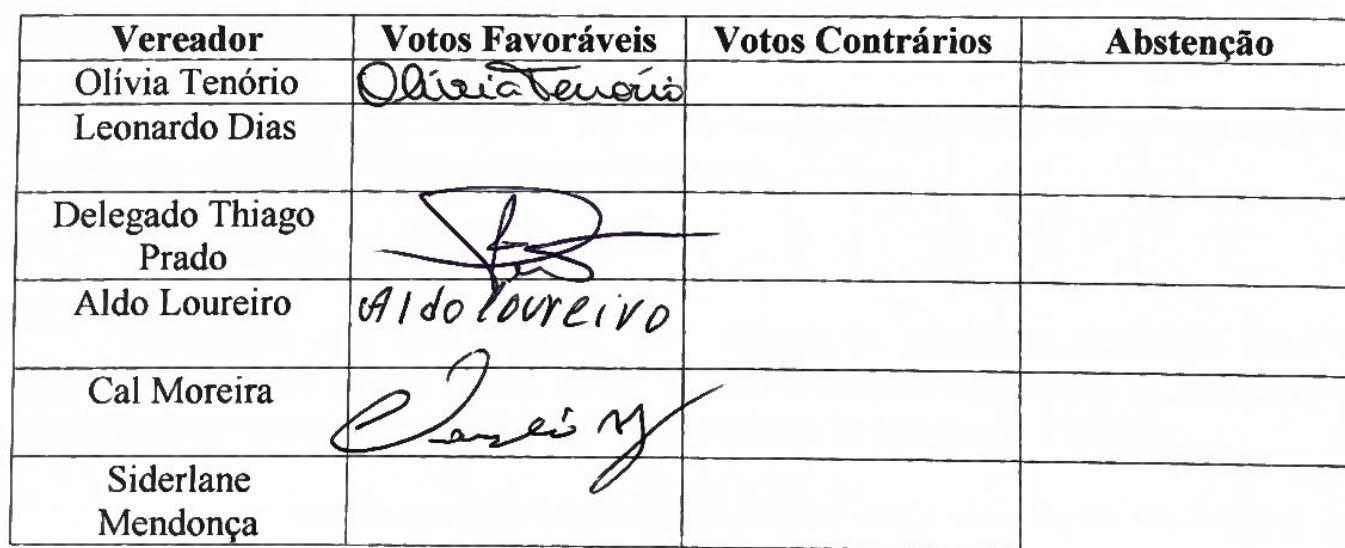 Vereador Votos Favoráveis Votos Contrários Abstenção
Olívia Tenório Olívia Tenório
Leonardo Dias
Delegado Thiago
Prado
Aldo Loureiro Aldo Loureiro
Cal Moreira
Siderlane
Mendonça